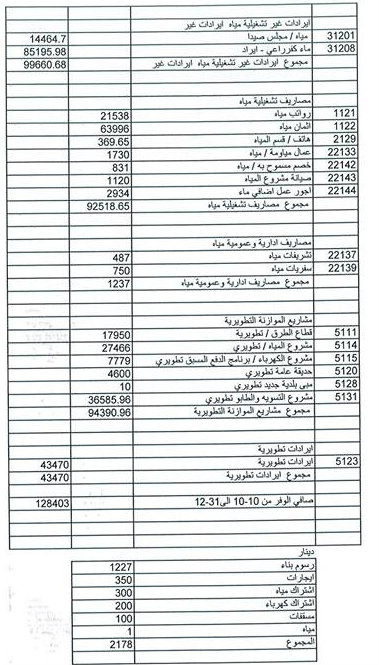 ايرادات غير تشغيلية مياه ايرادات غير
31201 مياه / مجلس صيدا 14464.7
31208 ماء كفرراعي - ايراد 85195.98
مجموع ايرادات غير تشغيلية مياه ايرادات غير 99660.68
مصاريف تشغيلية مياه
1121 رواتب مياه 21538
1122 اثمان مياه 63996
2129 هاتف / قسم المياه 369.65
22133 عمال مياومة / مياه 1730
22142 خصم مسموح به / مياه 831
22143 صيانة مشروع المياه 1120
22144 اجور عمل اضافي ماء 2934
مجموع مصاريف تشغيلية مياه 92518.65
مصاريف ادارية وعمومية مياه
22137 تشريفات مياه 487
22139 سفريات مياه 750
مجموع مصاريف ادارية وعمومية مياه 1237
مشاريع الموازنة التطويرية
5111 قطاع الطرق / تطويرية 17950
5114 مشروع المياه / تطويري 27466
5115 مشروع الكهرباء / برنامج الدفع المسبق تطويري 7779
5120 حديقة عامة تطويري 4600
5128 مبنى بلدية جديد تطويري 10
5131 مشروع التسويه والطابو تطويري 36585.96
مجموع مشاريع الموازنة التطويرية 94390.96
ايرادات تطويرية
5123 ايرادات تطويرية 43470
مجموع ايرادات تطويرية 43470
صافي الوفر من 10-10 الى 31-12 128403
دينار
رسوم بناء 1227
ايجارات 350
اشتراك مياه 300
اشتراك كهرباء 200
مسقفات 100
مياه 1
المجموع 2178